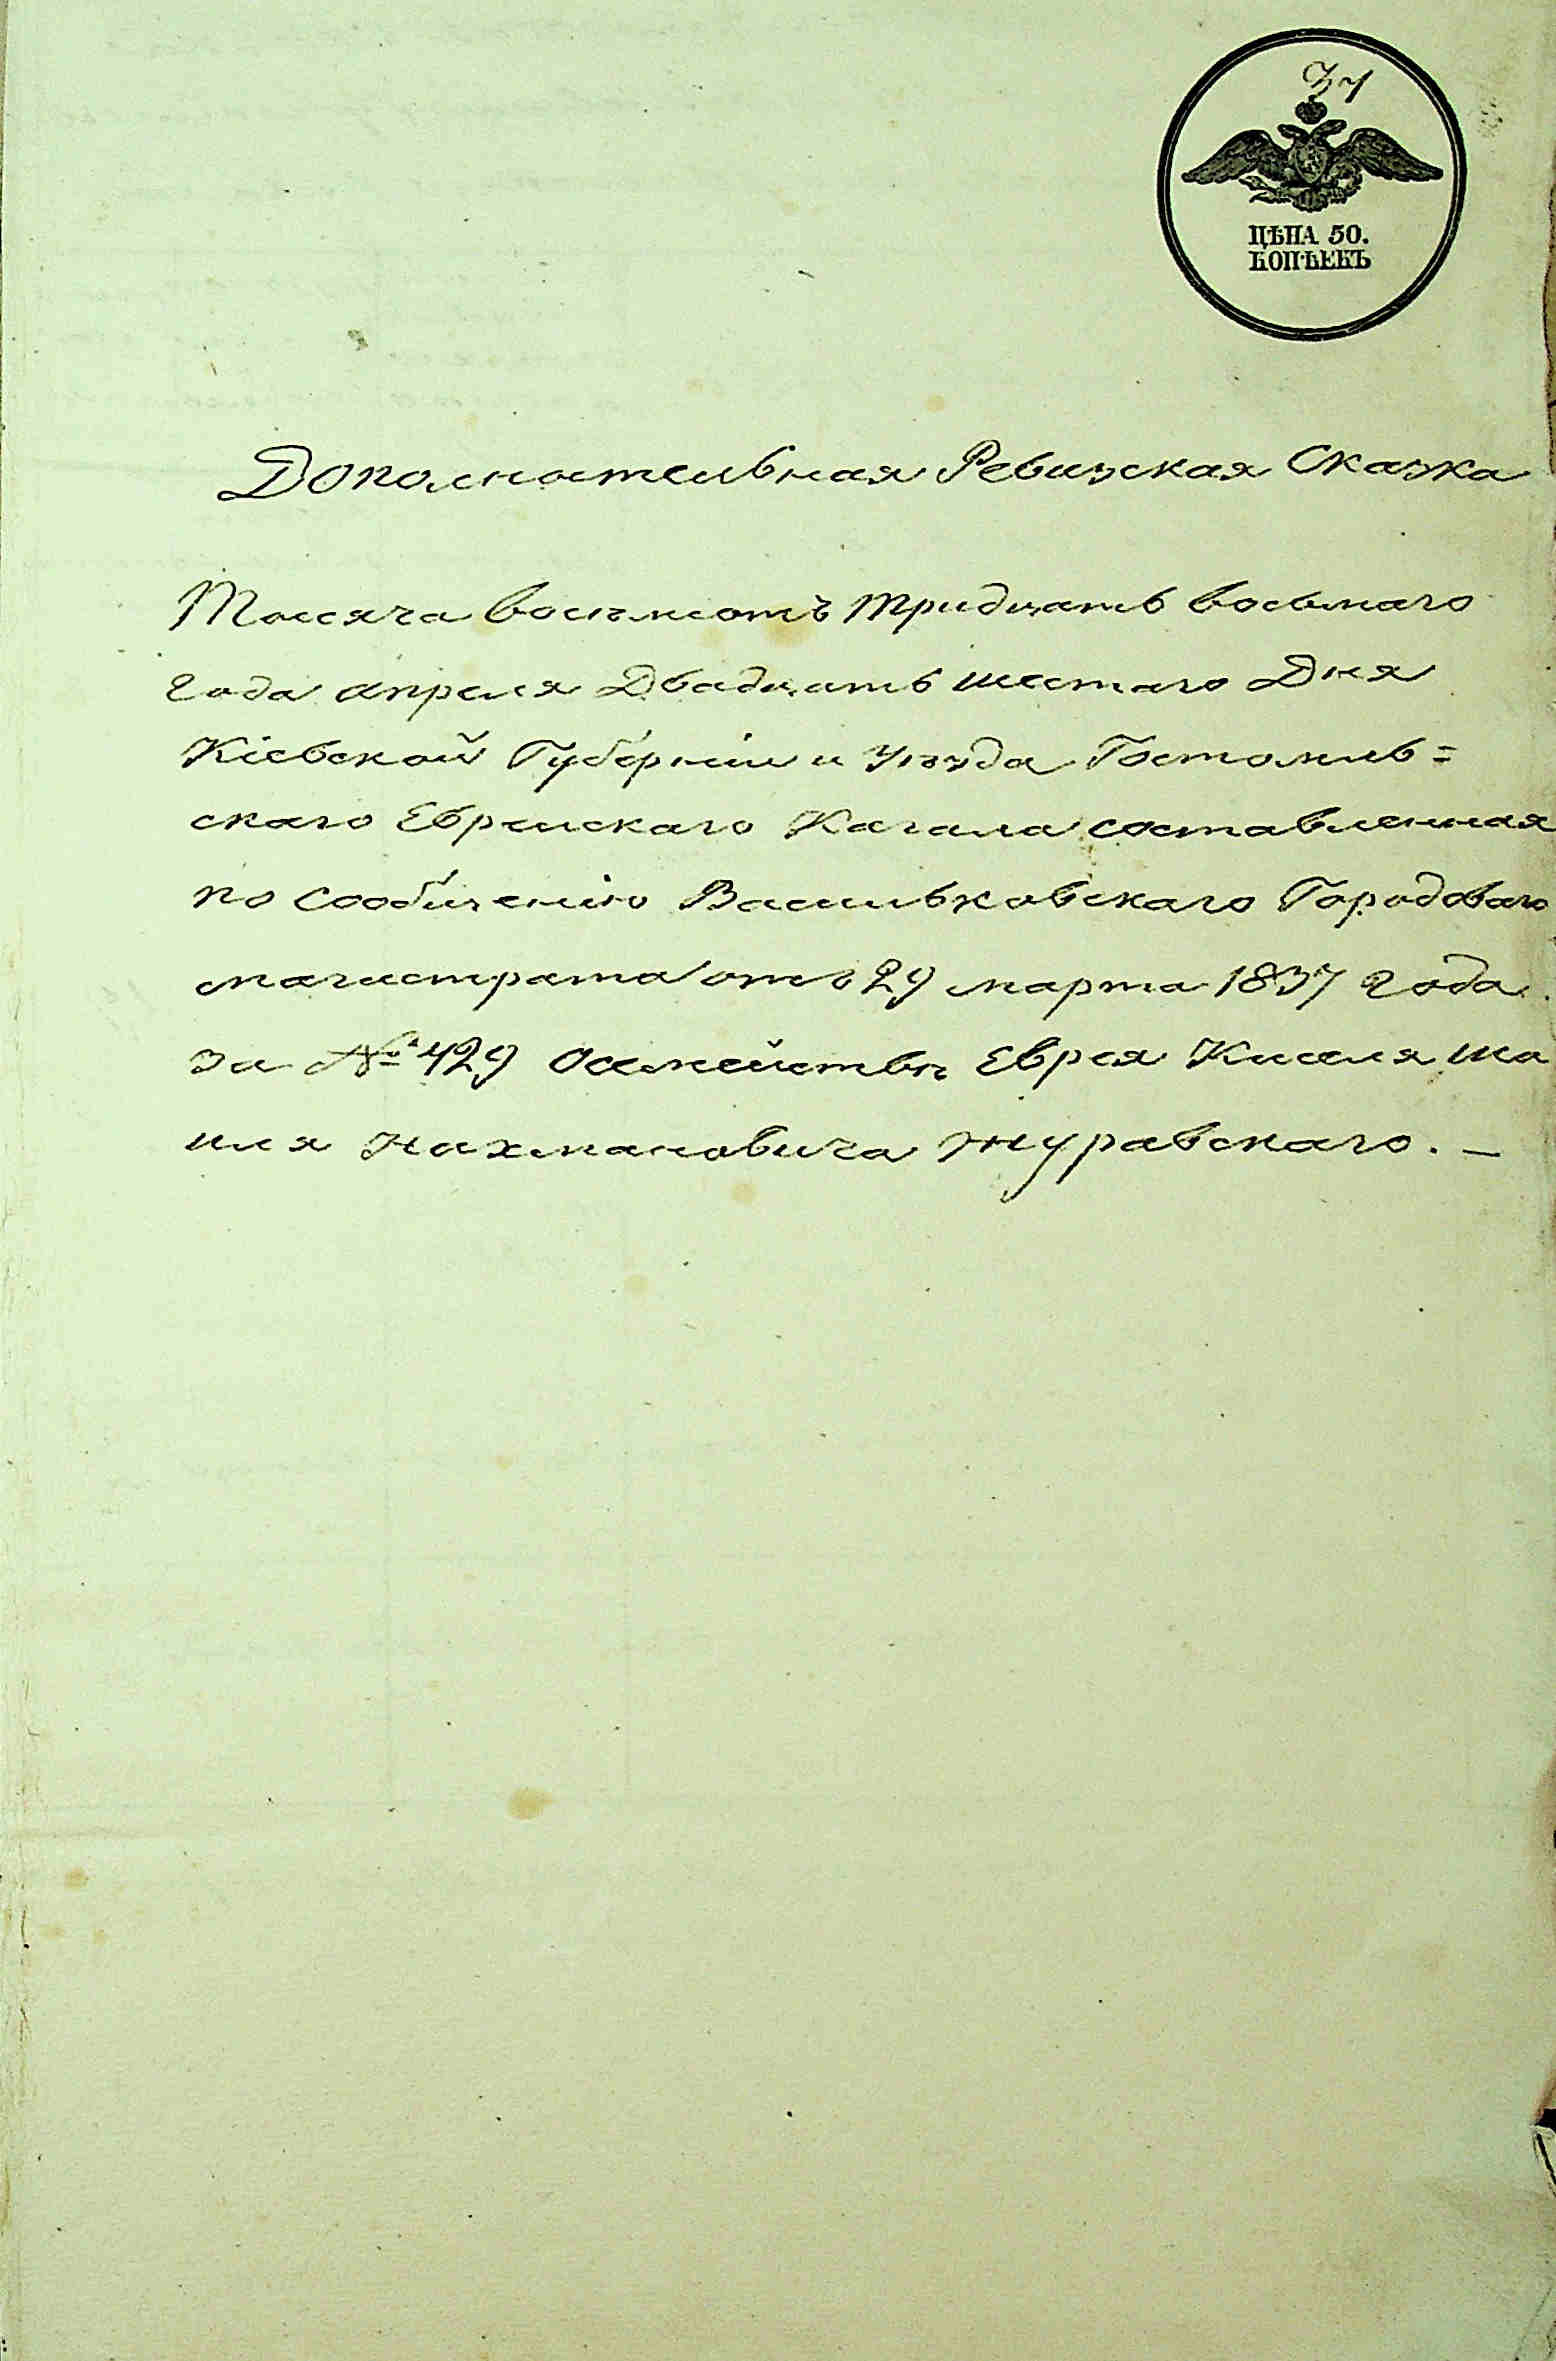 37
ЦѢНА 50.
КОПѢЕКЪ
Дополнательная Ревизская Сказка
Тысяча восемьсотъ тридцать восьмаго
года апреля двадцать шестаго Дня
Кіевской Губерніи и уѣзда Гостомль=
скаго Еврейскаго Кагала составленная
по сообщенію Васильковскаго Городоваго
магистрата отъ 29 марта 1837 года
за № 429 о семействѣ Еврея Киселя
Нахмановича Журавскаго. —